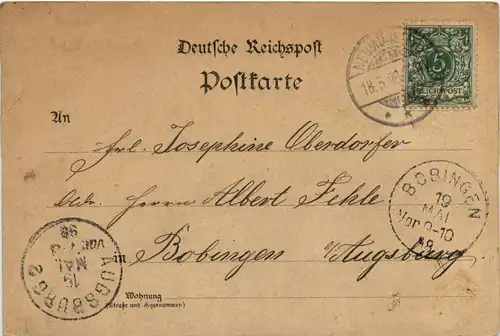 Deutsche Reichspost
Postkarte
18.5.
5
REICHSPOST
An
Frl. Josephine Oberdorfer
Adr. Herrn Albert Fehle
in Bobingen b/Augsburg
Wohnung
(Straße und Hausnummer)
BOBINGEN
19
MAI
Vor.9-10
98
AUGSBURG 2
19
MAI
Vor.
98